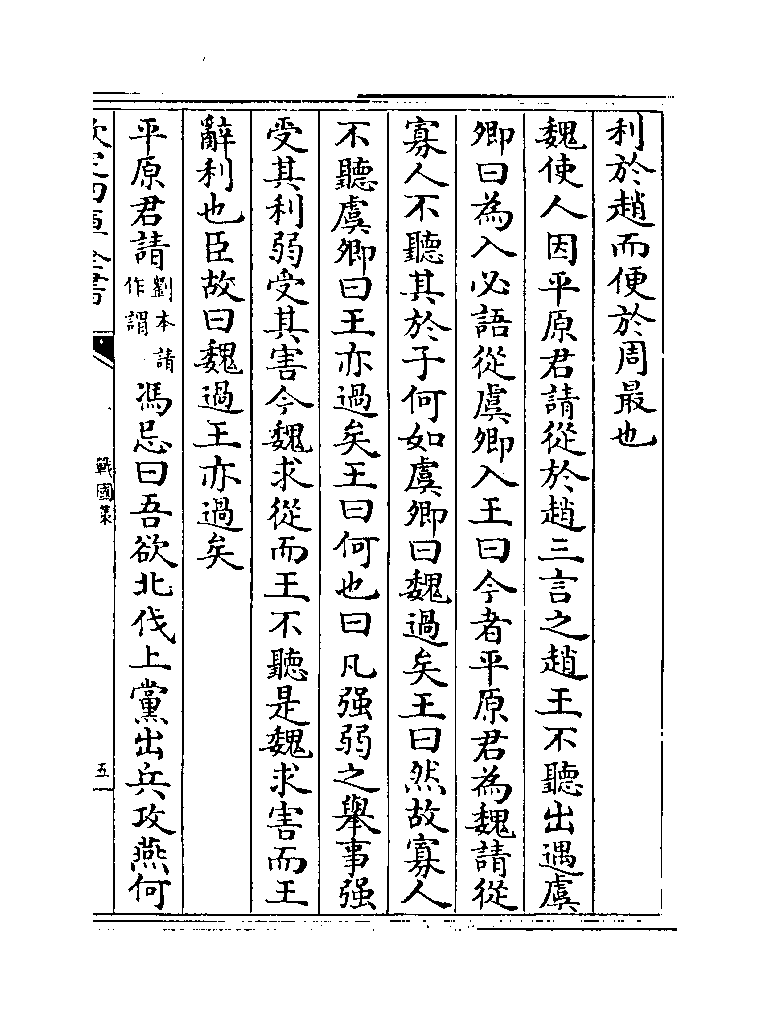 利於趙而便於周最也
魏使人因平原君請從於趙三言之趙王不聽出遇虞
卿曰為入必語從虞卿入王曰今者平原君為魏請從
寡人不聽其於子何如虞卿曰魏過矣王曰然故寡人
不聽虞卿曰王亦過矣王曰何也曰凡强弱之舉事强
受其利弱受其害今魏求從而王不聽是魏求害而王
辭利也臣故曰魏過王亦過矣
平原君請劉本請作謂馮忌曰吾欲北伐上黨出兵攻燕何
欽定四庫全書
戰國策
五